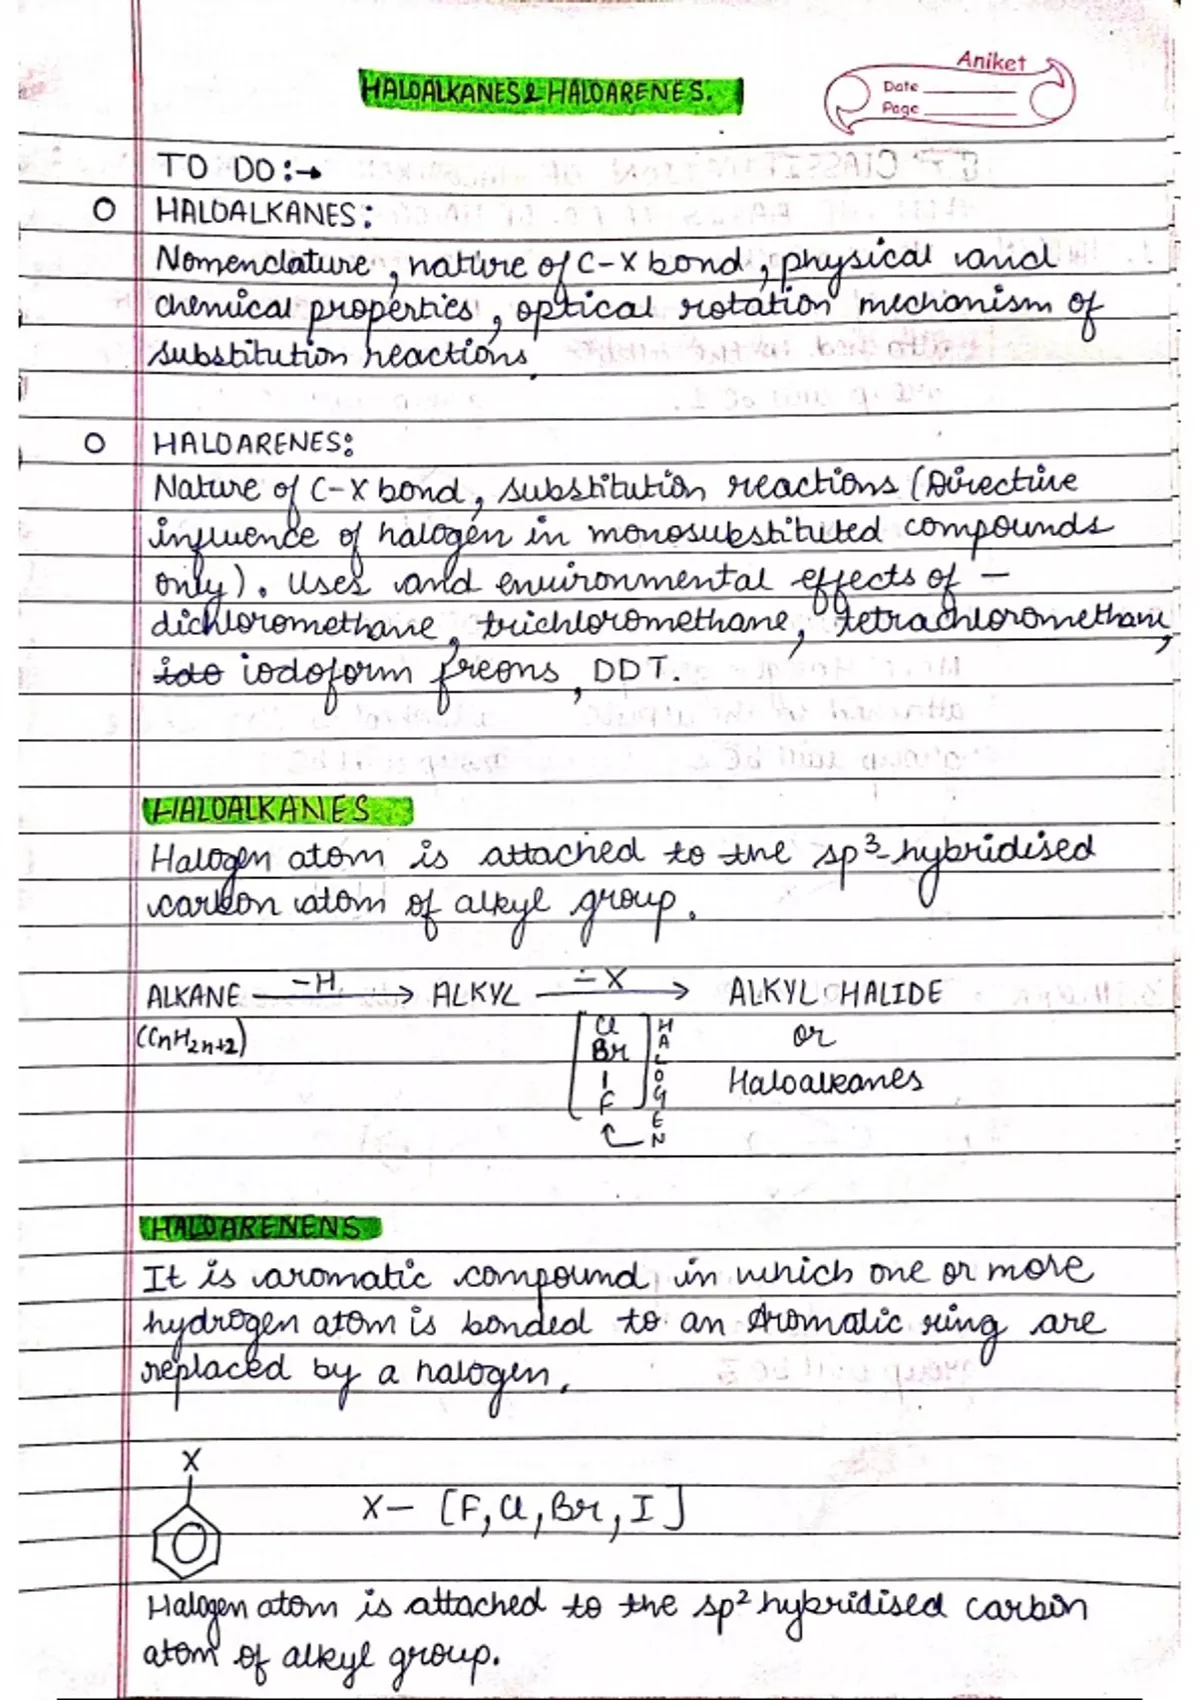 HALOALKANES & HALOARENES.
Aniket
Date
Page
TO DO:→
O HALOALKANES:
Nomenclature, nature of C-X bond, physical and
chemical properties, optical rotation mechanism of
substitution reactions.
O HALOARENES:
Nature of C-X bond, substitution reactions (Directive
influence of halogen in monosubstituted compounds
only). Uses and environmental effects of -
dichloromethane, trichloromethane, tetrachloromethane,
ido iodoform freons, DDT.
HALOALKANES
Halogen atom is attached to the sp³-hybridised
carbon atom of alkyl group.
ALKANE -H → ALKYL -X → ALKYL HALIDE
(CnH2n+2) [Cl Br I F] HALOGEN or
Haloalkanes
HALOARENENS
It is aromatic compound in which one or more
hydrogen atom is bonded to an Aromatic ring are
replaced by a halogen.
X
X- [F, Cl, Br, I]
Halogen atom is attached to the sp² hybridised carbon
atom of alkyl group.